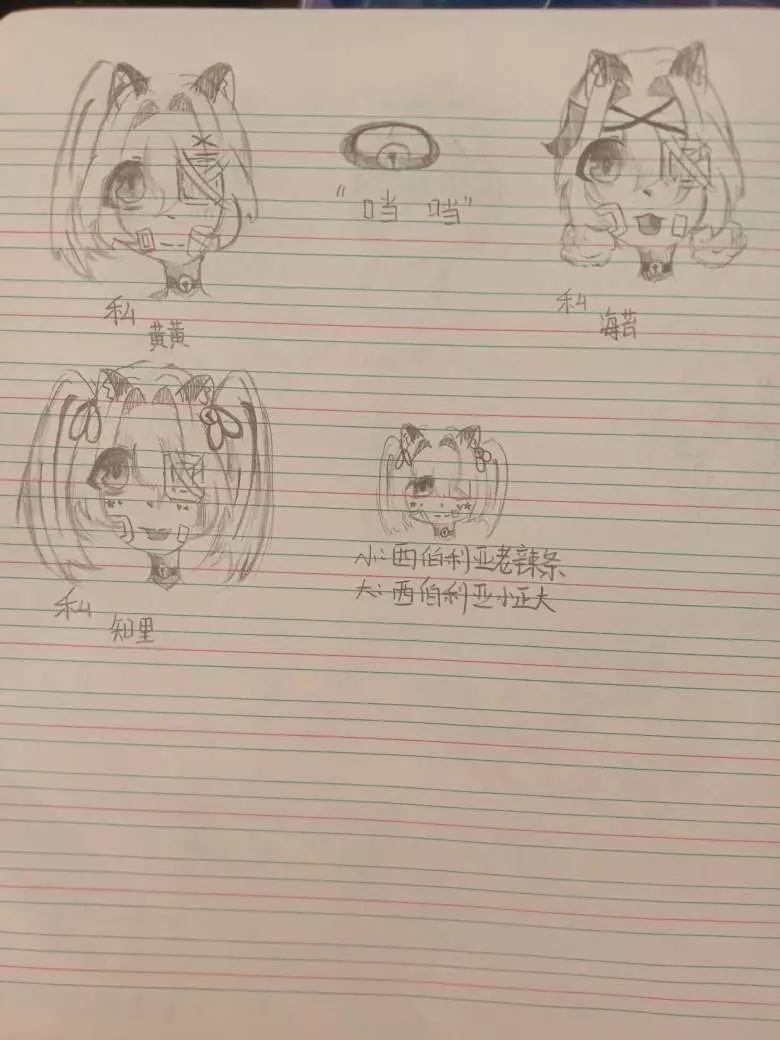 "咣 咣"
私
黄黄
私
海苔
私
知里
小:西伯利亚老辣条
大:西伯利亚小正太